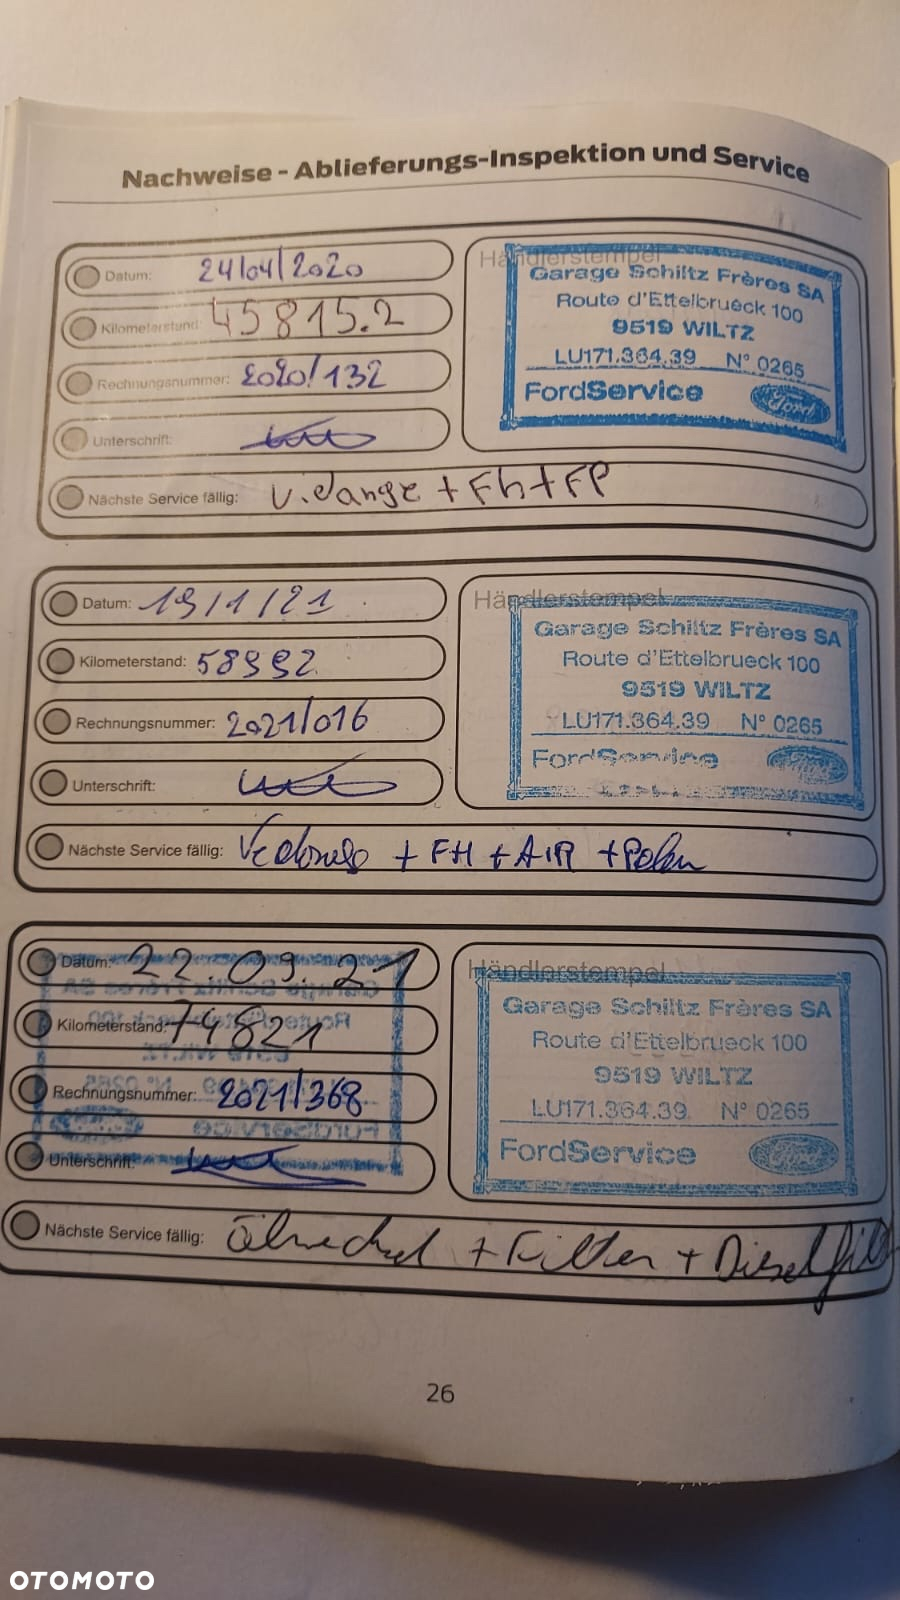 Nachweise - Ablieferungs-Inspektion und Service
Datum: 24/04/2020
Kilometerstand: 45815.2
Rechnungsnummer: 2020/132
Unterschrift:
Händlerstempel
Garage Schiltz Frères SA
Route d'Ettelbrueck 100
9519 WILTZ
LU171.364.39 N° 0265
FordService
Ford
Nächste Service fällig: Vidange + FH + FP
Datum: 19/1/21
Kilometerstand: 58992
Rechnungsnummer: 2021/016
Unterschrift:
Händlerstempel
Garage Schiltz Frères SA
Route d'Ettelbrueck 100
9519 WILTZ
LU171.364.39 N° 0265
FordService
Ford
Nächste Service fällig: + FH + AIR + Pollen
Datum: 22.09.21
Kilometerstand: 74821
Rechnungsnummer: 2021/368
Unterschrift:
Händlerstempel
Garage Schiltz Frères SA
Route d'Ettelbrueck 100
9519 WILTZ
LU171.364.39 N° 0265
FordService
Ford
Nächste Service fällig: Ölwechsel + Filter + Dieselfilt
26
OTOMOTO